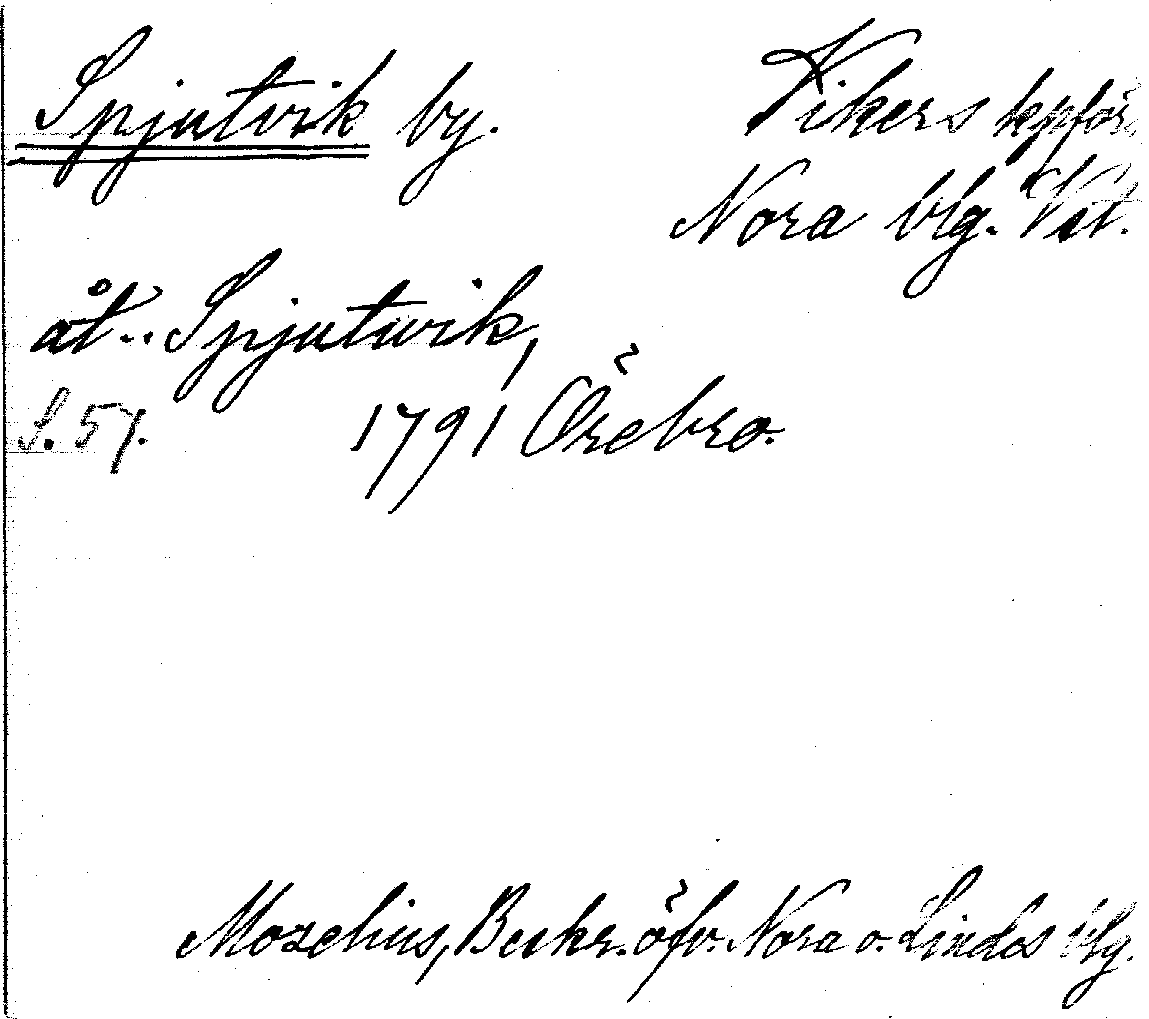 Spjutvik by. Vikers kpför.
Nora blg. Vstm.
åt.. Spjutwik,
S. 57. 1791 Örebro.
Moschius, Beskr. öfv. Nora o. Lindes blg.